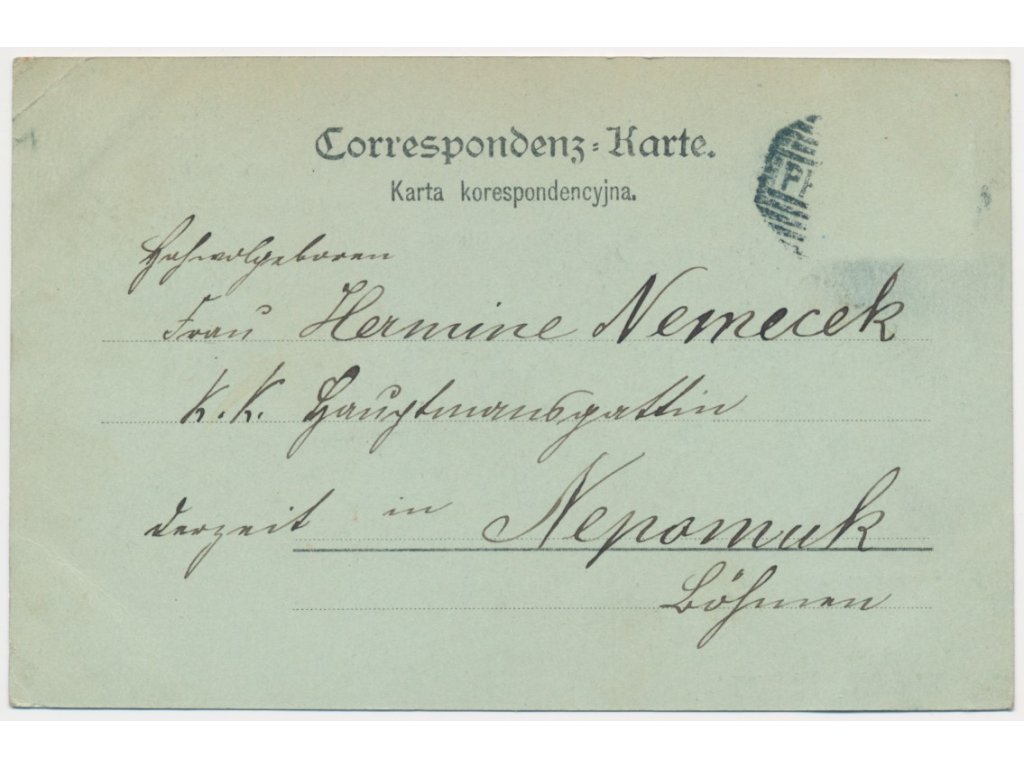 Correspondenz-Karte.
Karta korespondencyjna.
Hohwolgeboren
Frau Hermine Nemecek
K. K. Hauptmansgattin
derzeit in Nepomuk
Böhmen